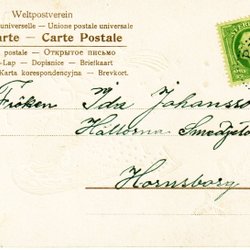 Weltpostverein
universelle – Unione postale universale
arte – Carte Postale
postale – Открытое письмо
-Lap – Dopisnice – Briefkaart
Karta korespondencyjna – Brevkort.
Fröken Ida Johansso
Hällorna Smedjeto
Hornsborg